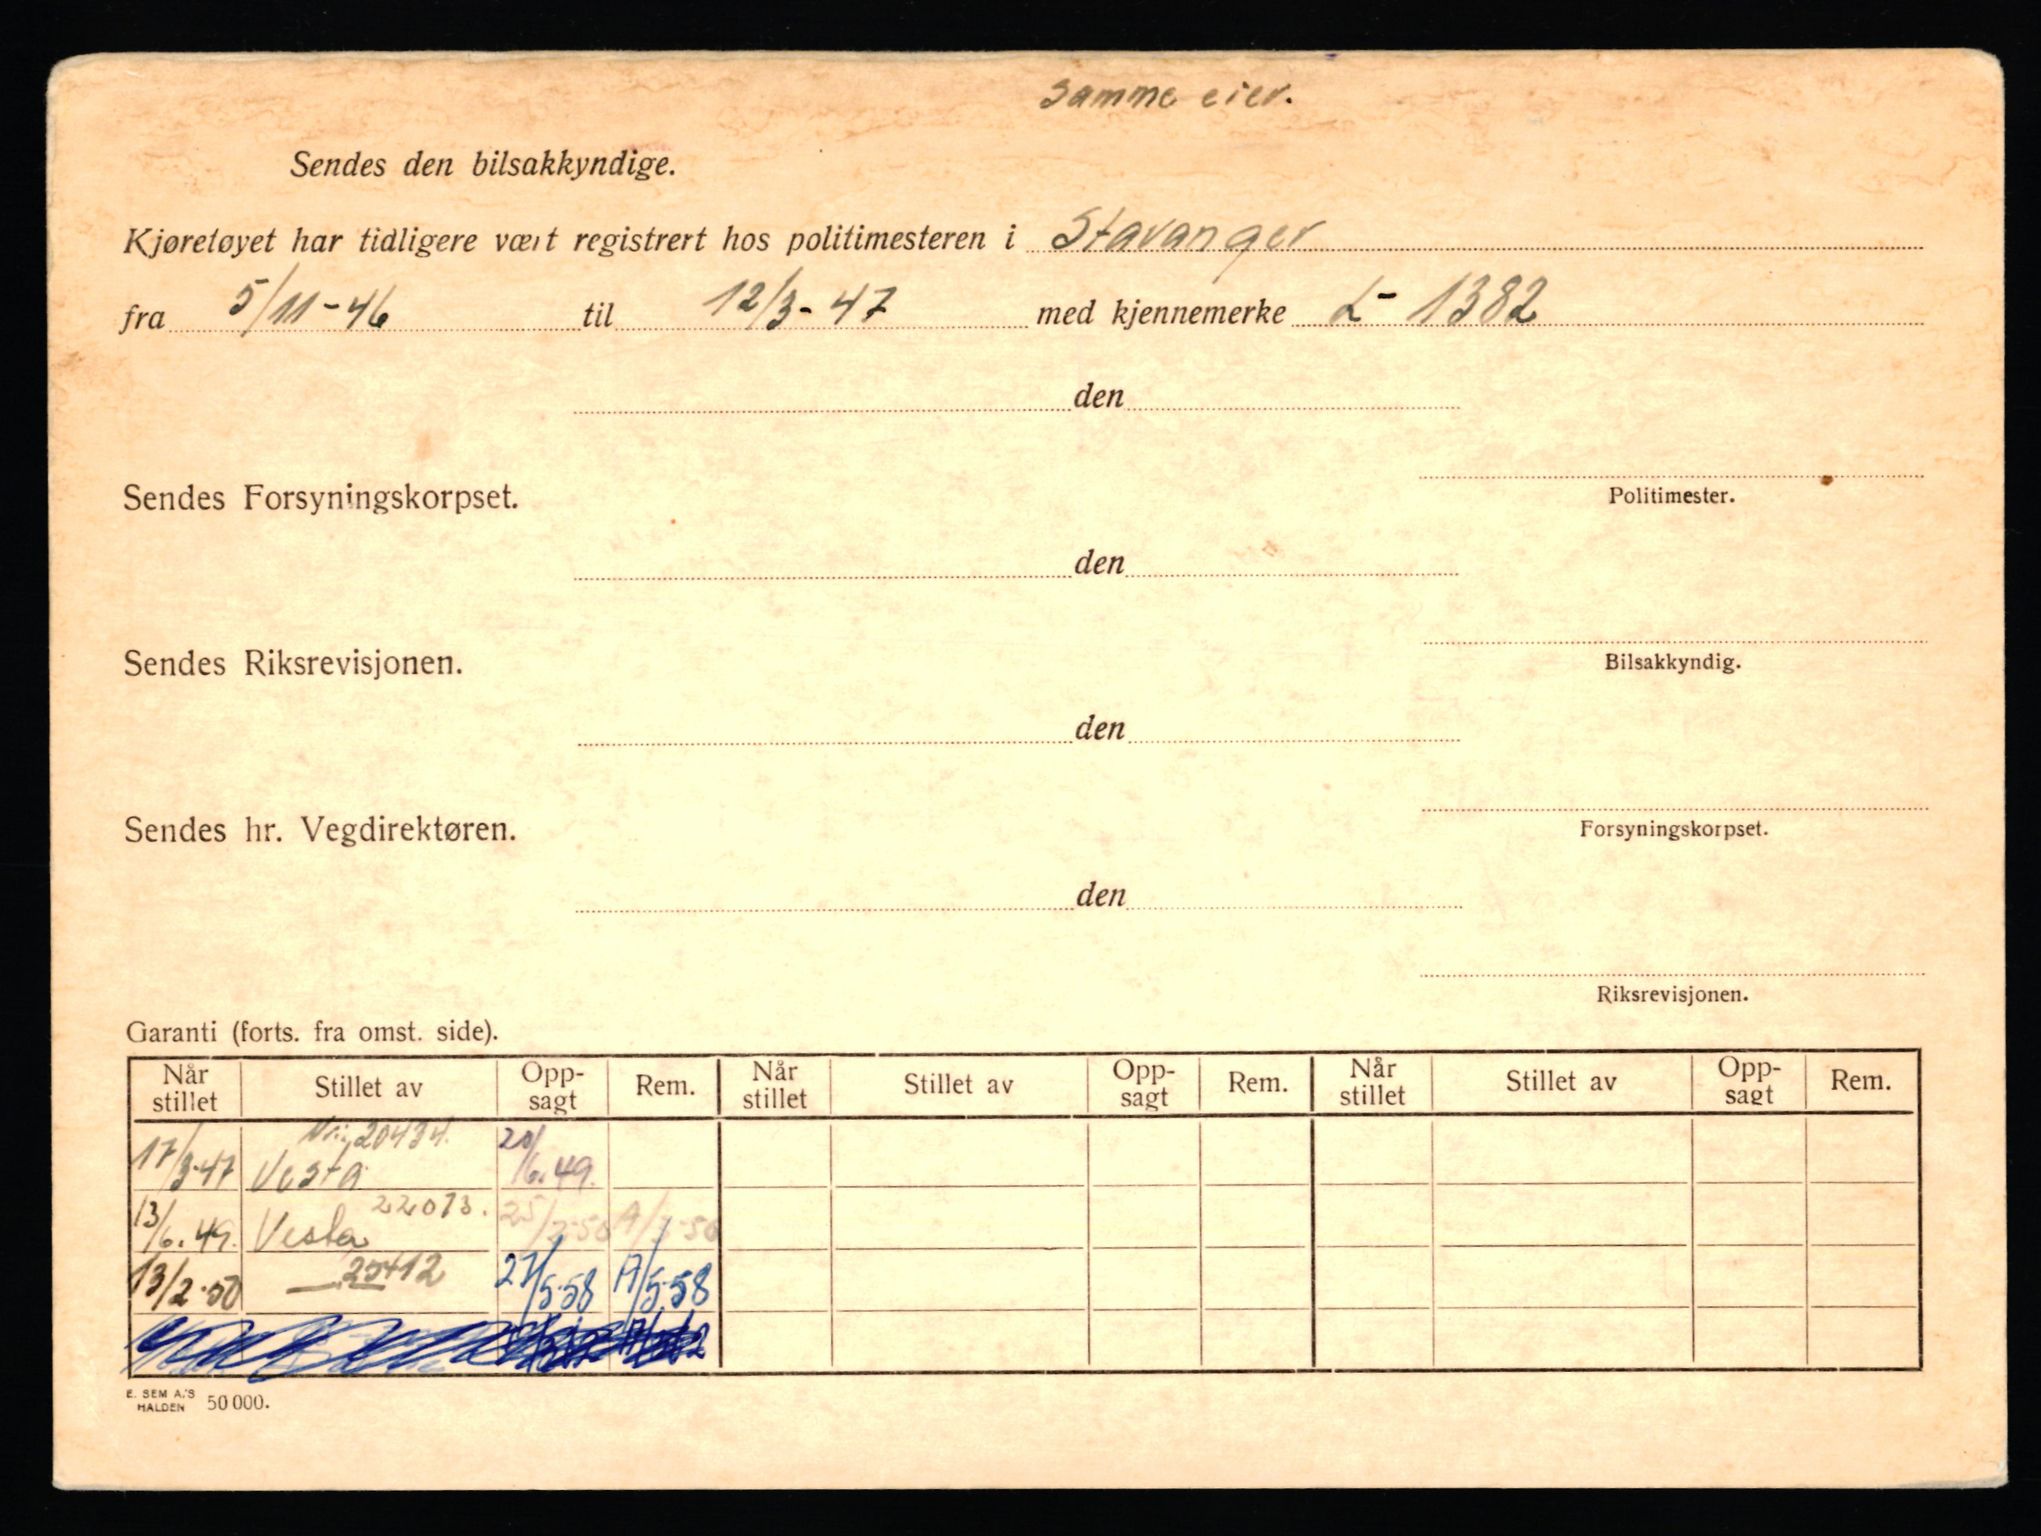 Samme eier.
Sendes den bilsakkyndige.
Kjøretøyet har tidligere vært registrert hos politimesteren i Stavanger
fra 5/11-46 til 12/3-47 med kjennemerke L-1382
den
Politimester.
Sendes Forsyningskorpset.
den
Bilsakkyndig.
Sendes Riksrevisjonen.
den
Forsyningskorpset.
Sendes hr. Vegdirektøren.
den
Riksrevisjonen.
Garanti (forts. fra omst. side).
Når stillet Stillet av Opp-sagt Rem. Når stillet Stillet av Opp-sagt Rem. Når stillet Stillet av Opp-sagt Rem.
20434.
17/3-47 Vesta 20/6.49.
22073.
13/6.49. Vesta
13/2-50 — 25412 27/5-58 A/5-58
E. SEM A/S
HALDEN 50 000.